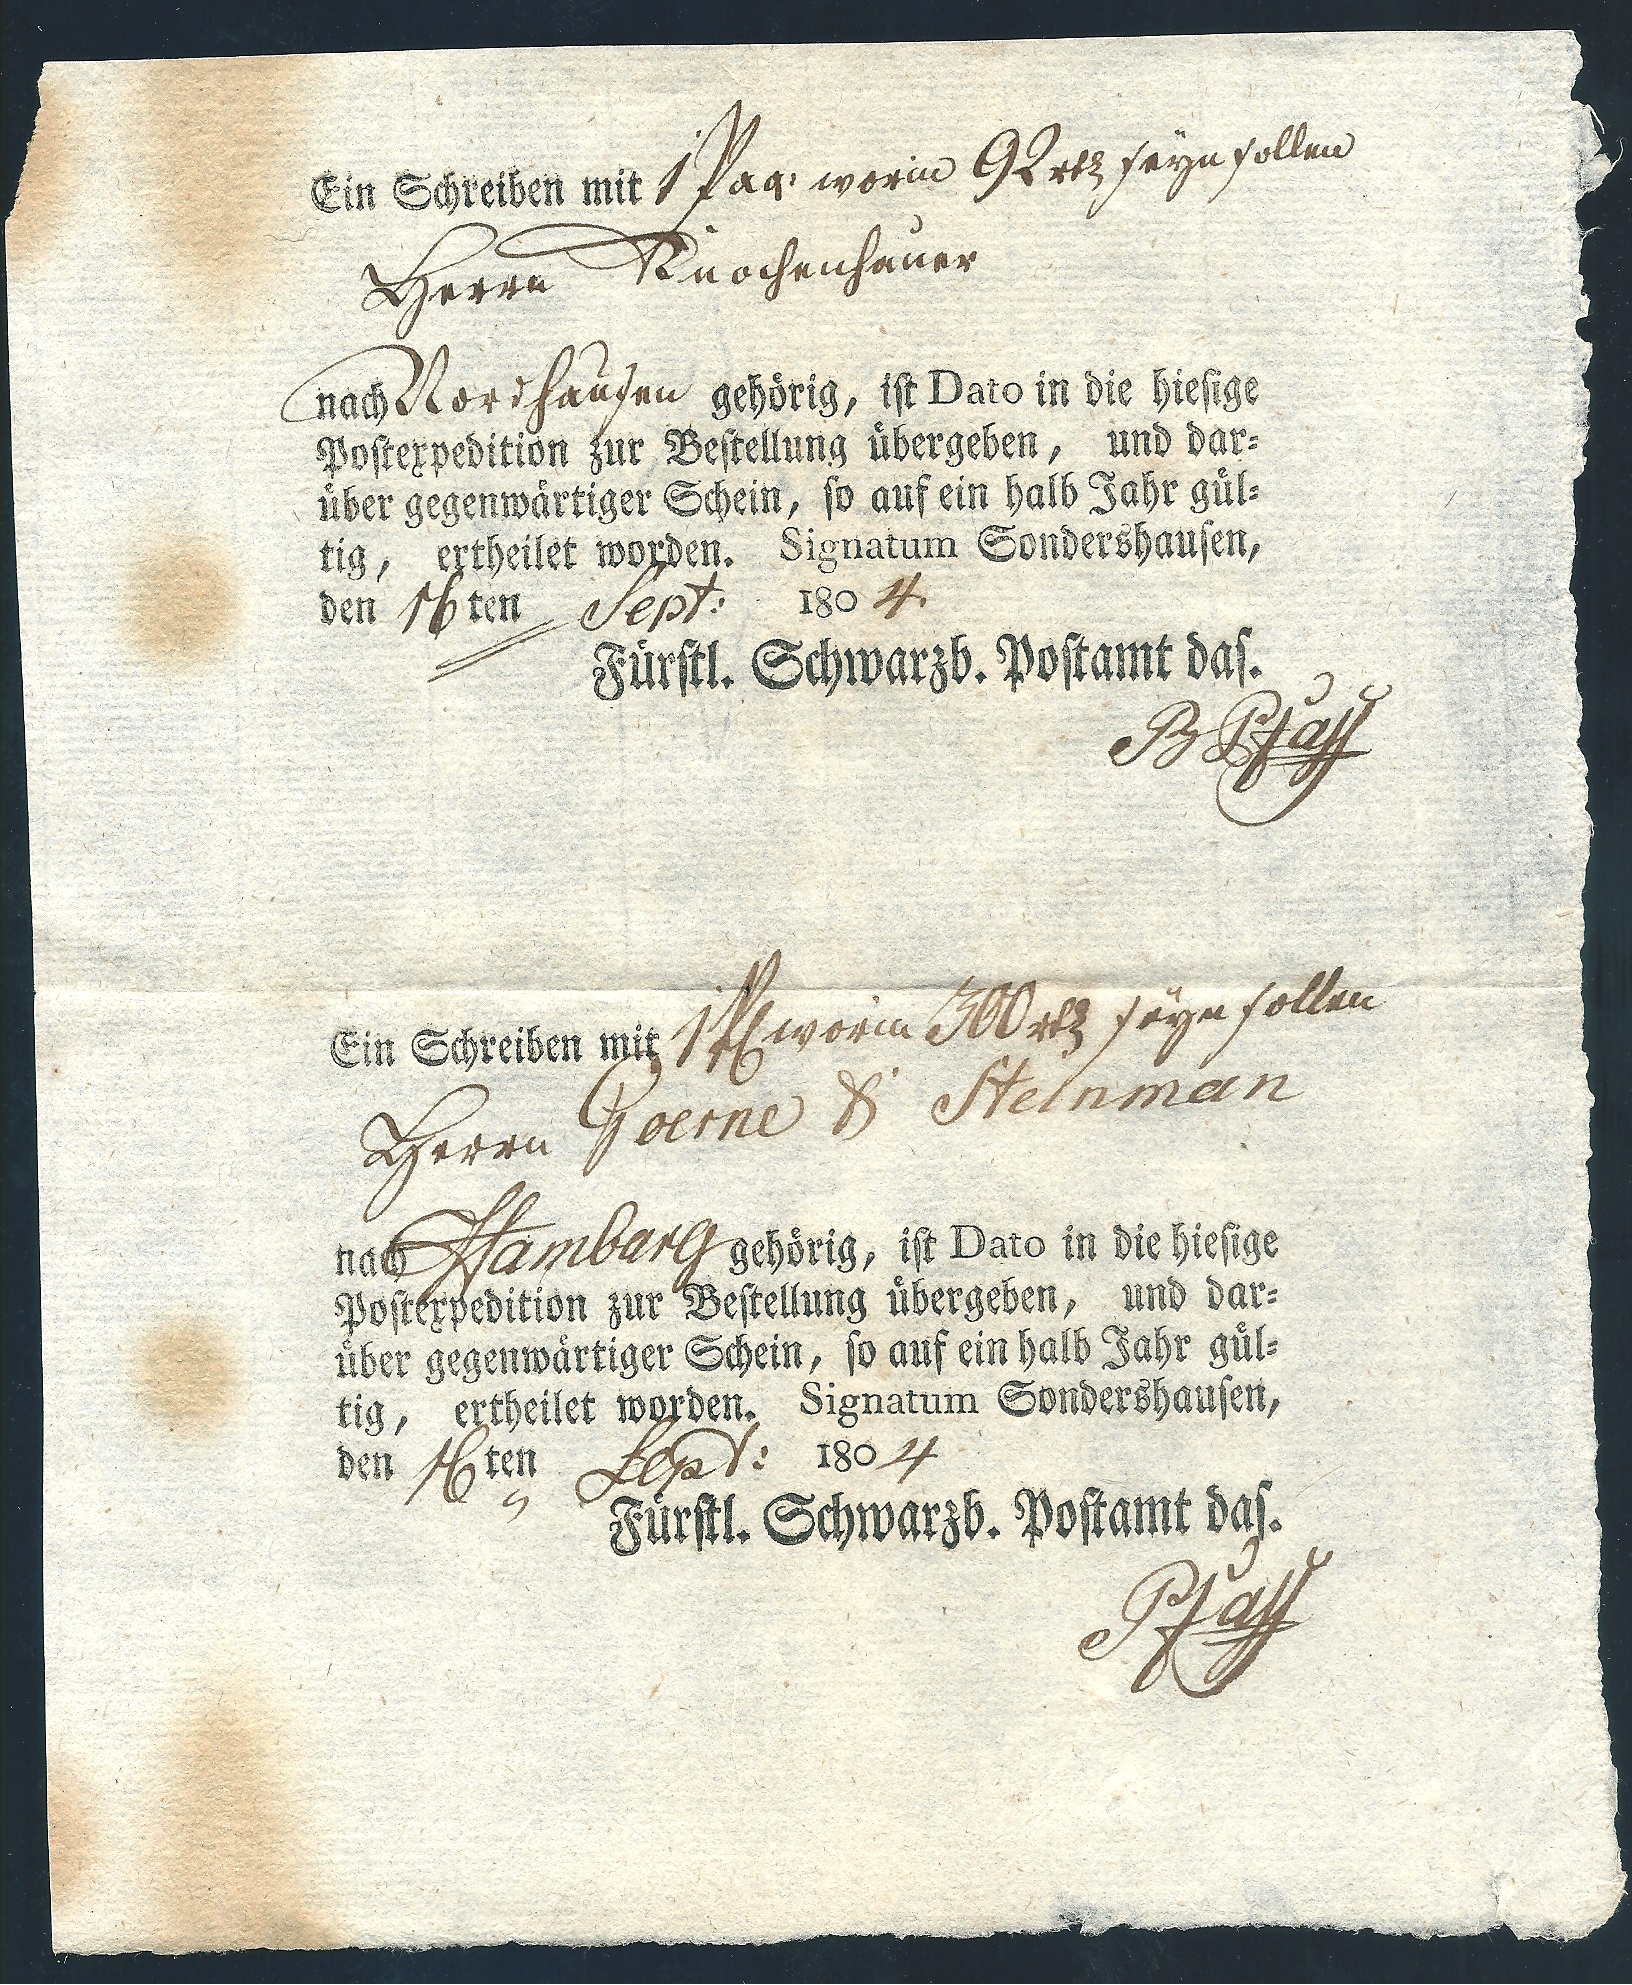 Ein Schreiben mit 1 Paq: worin 92 rtl seyn sollen
Herrn Knochenhauer
nach Nordhausen gehörig, ist Dato in die hiesige
Postexpedition zur Bestellung übergeben, und dar-
über gegenwärtiger Schein, so auf ein halb Jahr gül-
tig, ertheilet worden. Signatum Sondershausen,
den 16ten Sept: 1804.
Fürstl. Schwarzb. Postamt das.
Pfaff
Ein Schreiben mit 1 worin 300 rtl seyn sollen
Herrn Goerne & Steinman
nach Hamburg gehörig, ist Dato in die hiesige
Postexpedition zur Bestellung übergeben, und dar-
über gegenwärtiger Schein, so auf ein halb Jahr gül-
tig, ertheilet worden. Signatum Sondershausen,
den 16ten Sept: 1804
Fürstl. Schwarzb. Postamt das.
Pfaff